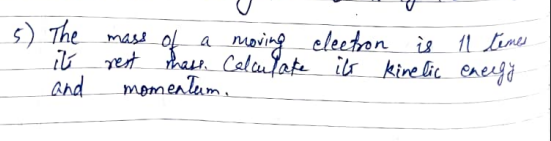 5) The mass of a moving electron is 11 times
its rest mass. Calculate its kinetic energy
and momentum.